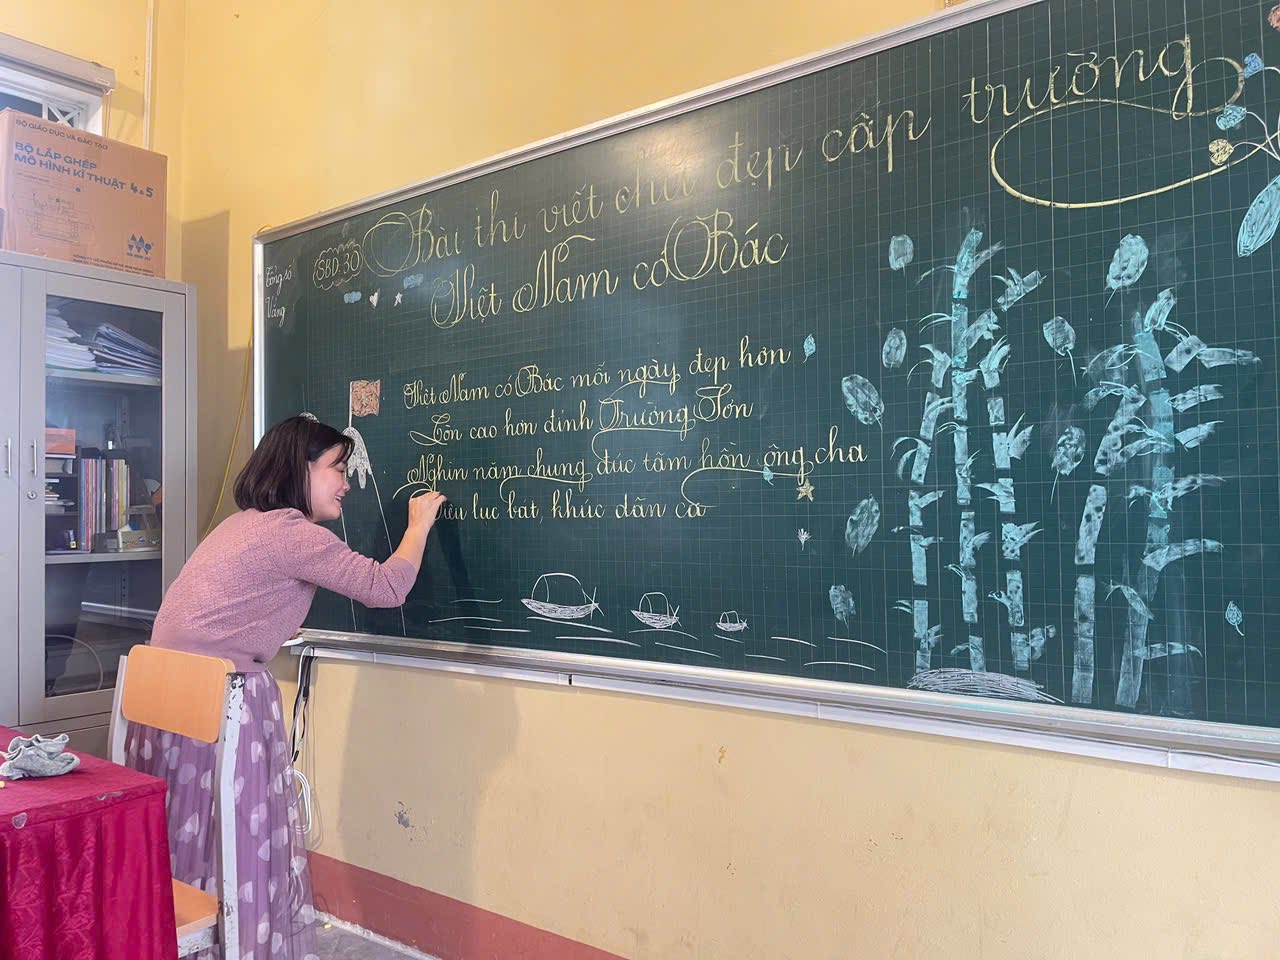 BỘ GIÁO DỤC VÀ ĐÀO TẠO
BỘ LẮP GHÉP
MÔ HÌNH KĨ THUẬT 4&5
Tổng số
Vắng
SBD: 30
Bài thi viết chữ đẹp cấp trường
Việt Nam có Bác
Việt Nam có Bác mỗi ngày đẹp hơn
Còn cao hơn đỉnh Trường Sơn
Nghìn năm chung đúc tâm hồn ông cha
lục bát, khúc dân ca